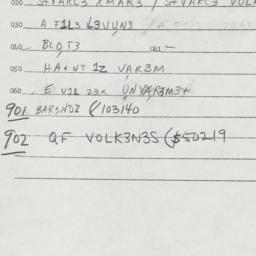 020 STVARC3 XMAR3 / STVARC3 VOLK
030 A F1L3 L3VUN3
040 BLQT3 041 —
050 HA+NT 1Z VAR3M
060 E V1L 23X UNVAR3M3+
901 BAR1NDZ (/103140
902 QF VOLK3N3S ($50219